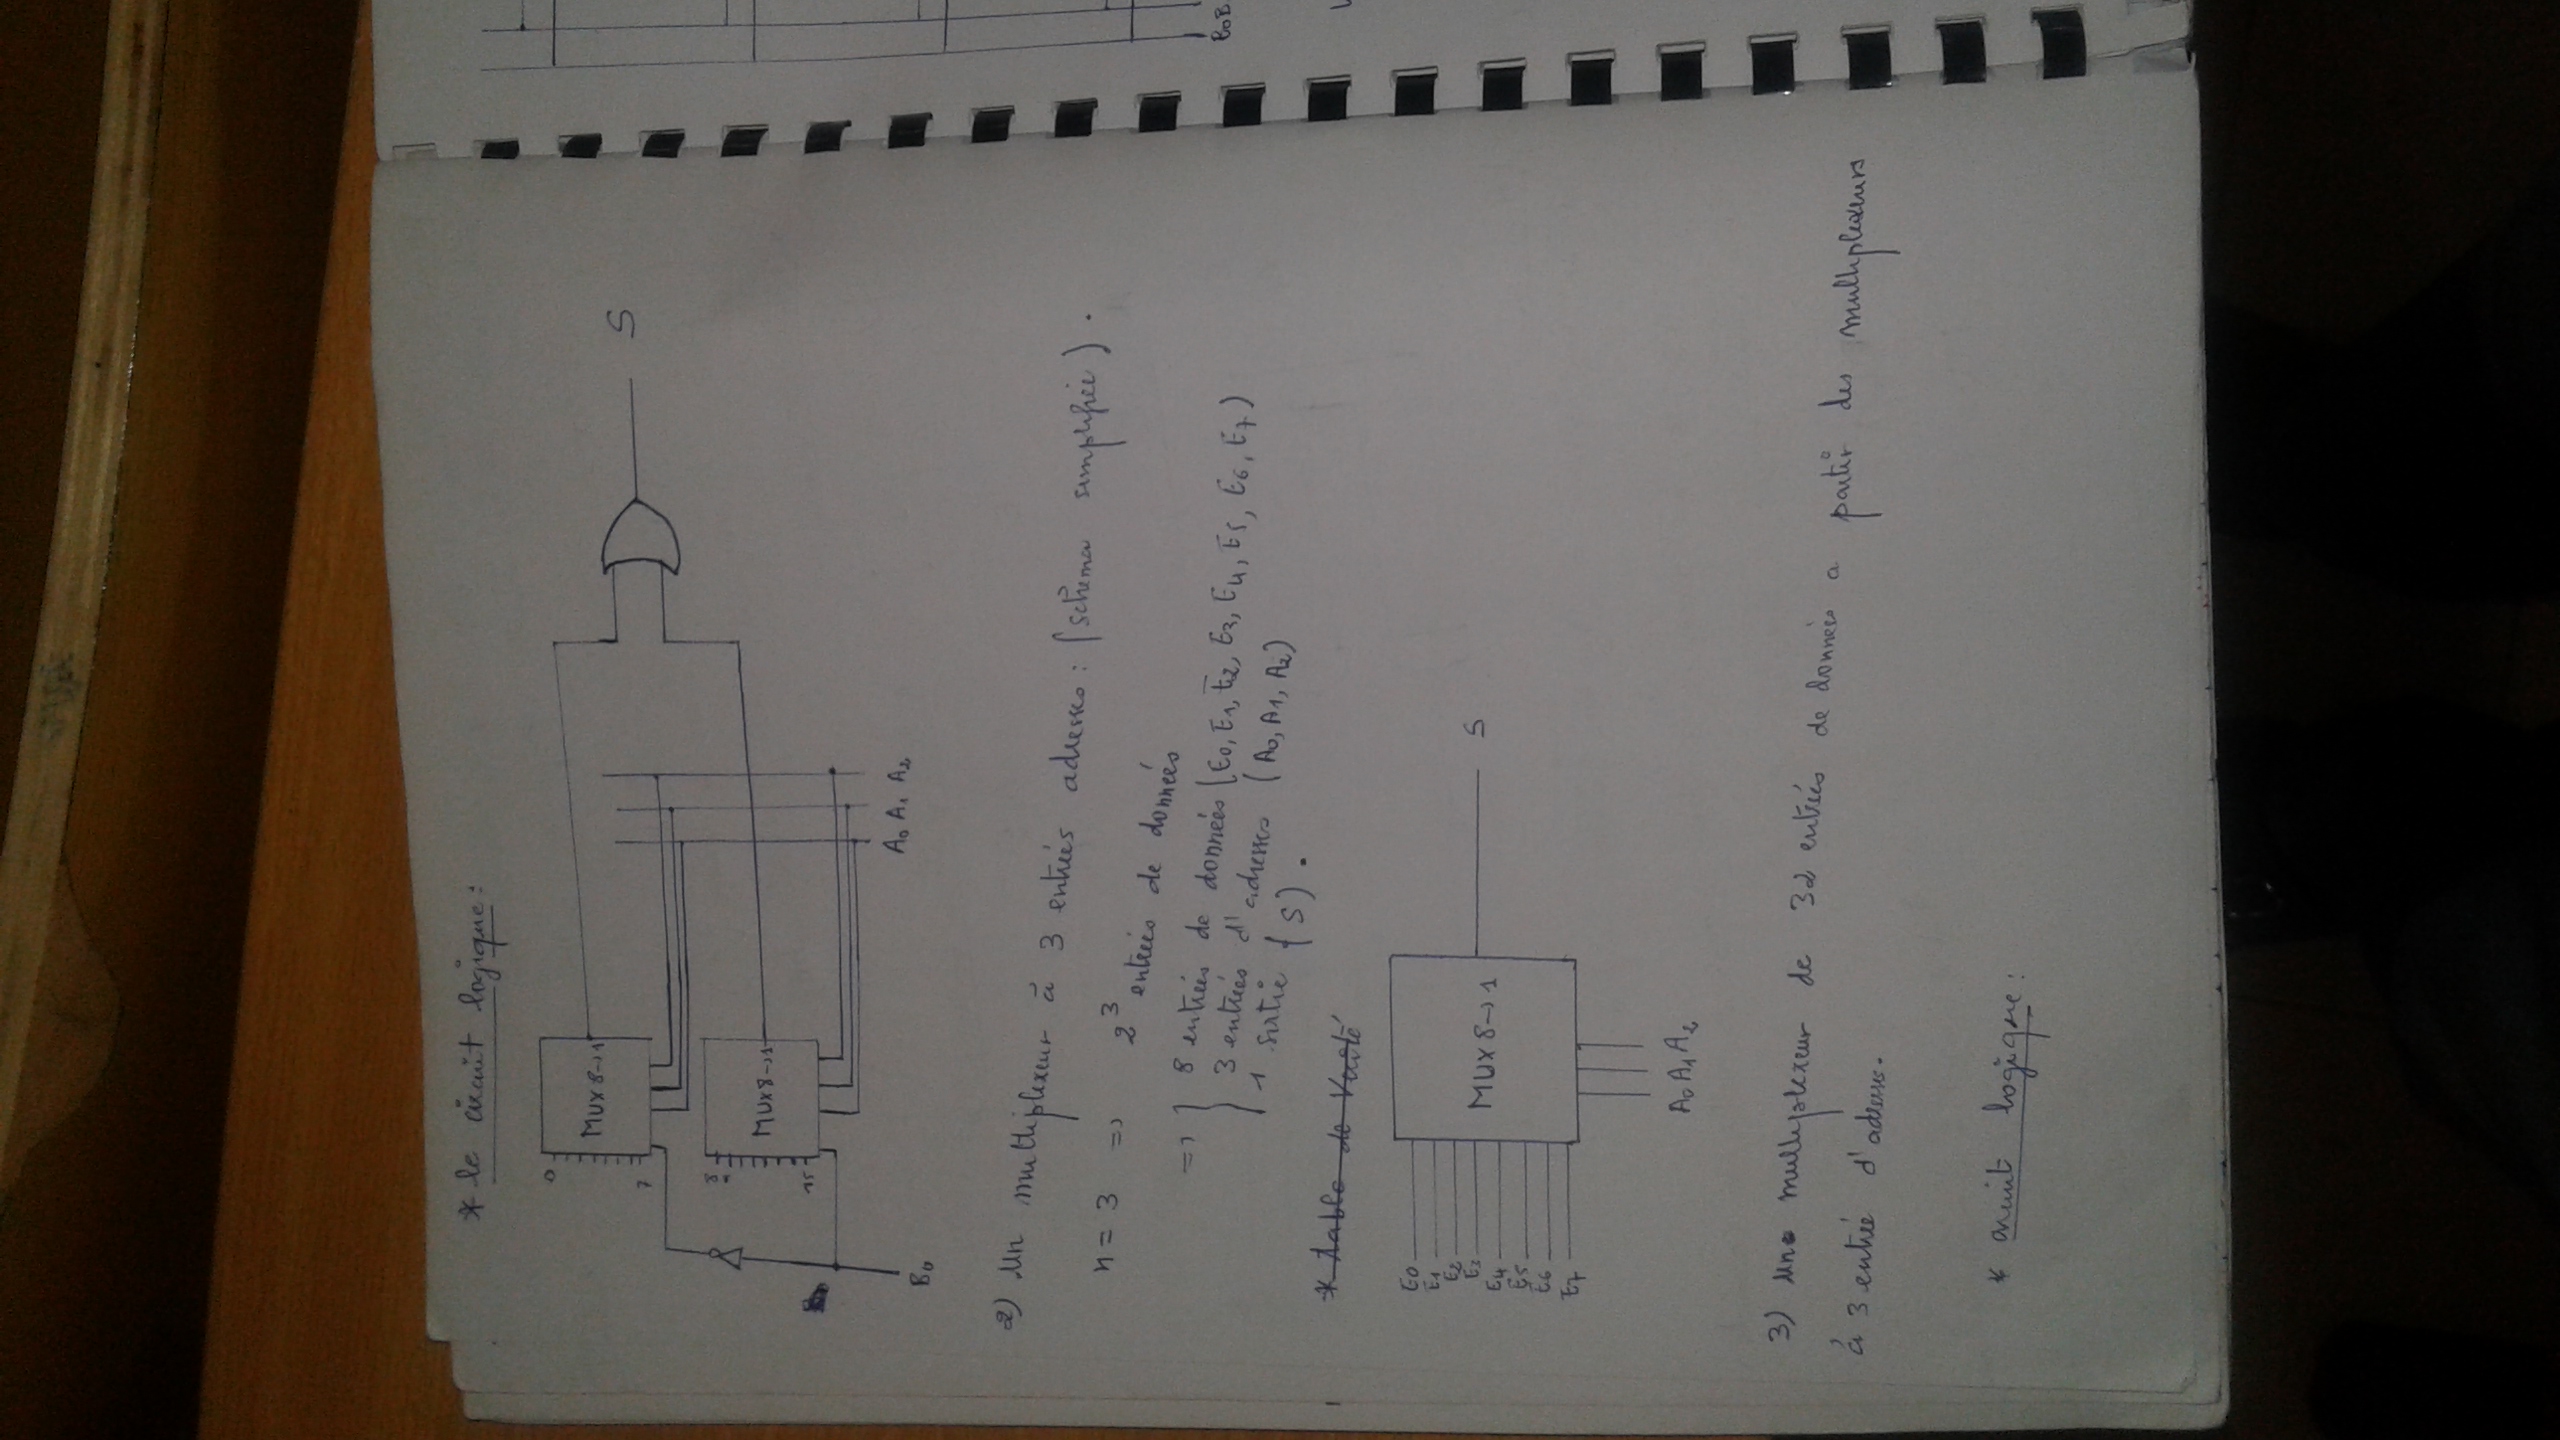 * le circuit logique :
0
MUX 8→1
7
S
8
MUX 8→1
15
A0 A1 A2
B0
2) Un multiplexeur à 3 entrées adresses : (schéma simplifiée).
n = 3 => 2^3 entrées de données
=> { 8 entrées de données (E0, E1, E2, E3, E4, E5, E6, E7)
3 entrées d'adresses (A0, A1, A2)
1 sortie (S).
* table de Vérité
E0
E1
E2
E3
E4
E5
E6
E7
MUX 8→1
S
A0 A1 A2
3) Un multiplexeur de 32 entrées de données a partir des multiplexeurs
à 3 entrée d'adresse.
* circuit logique :
B0 B